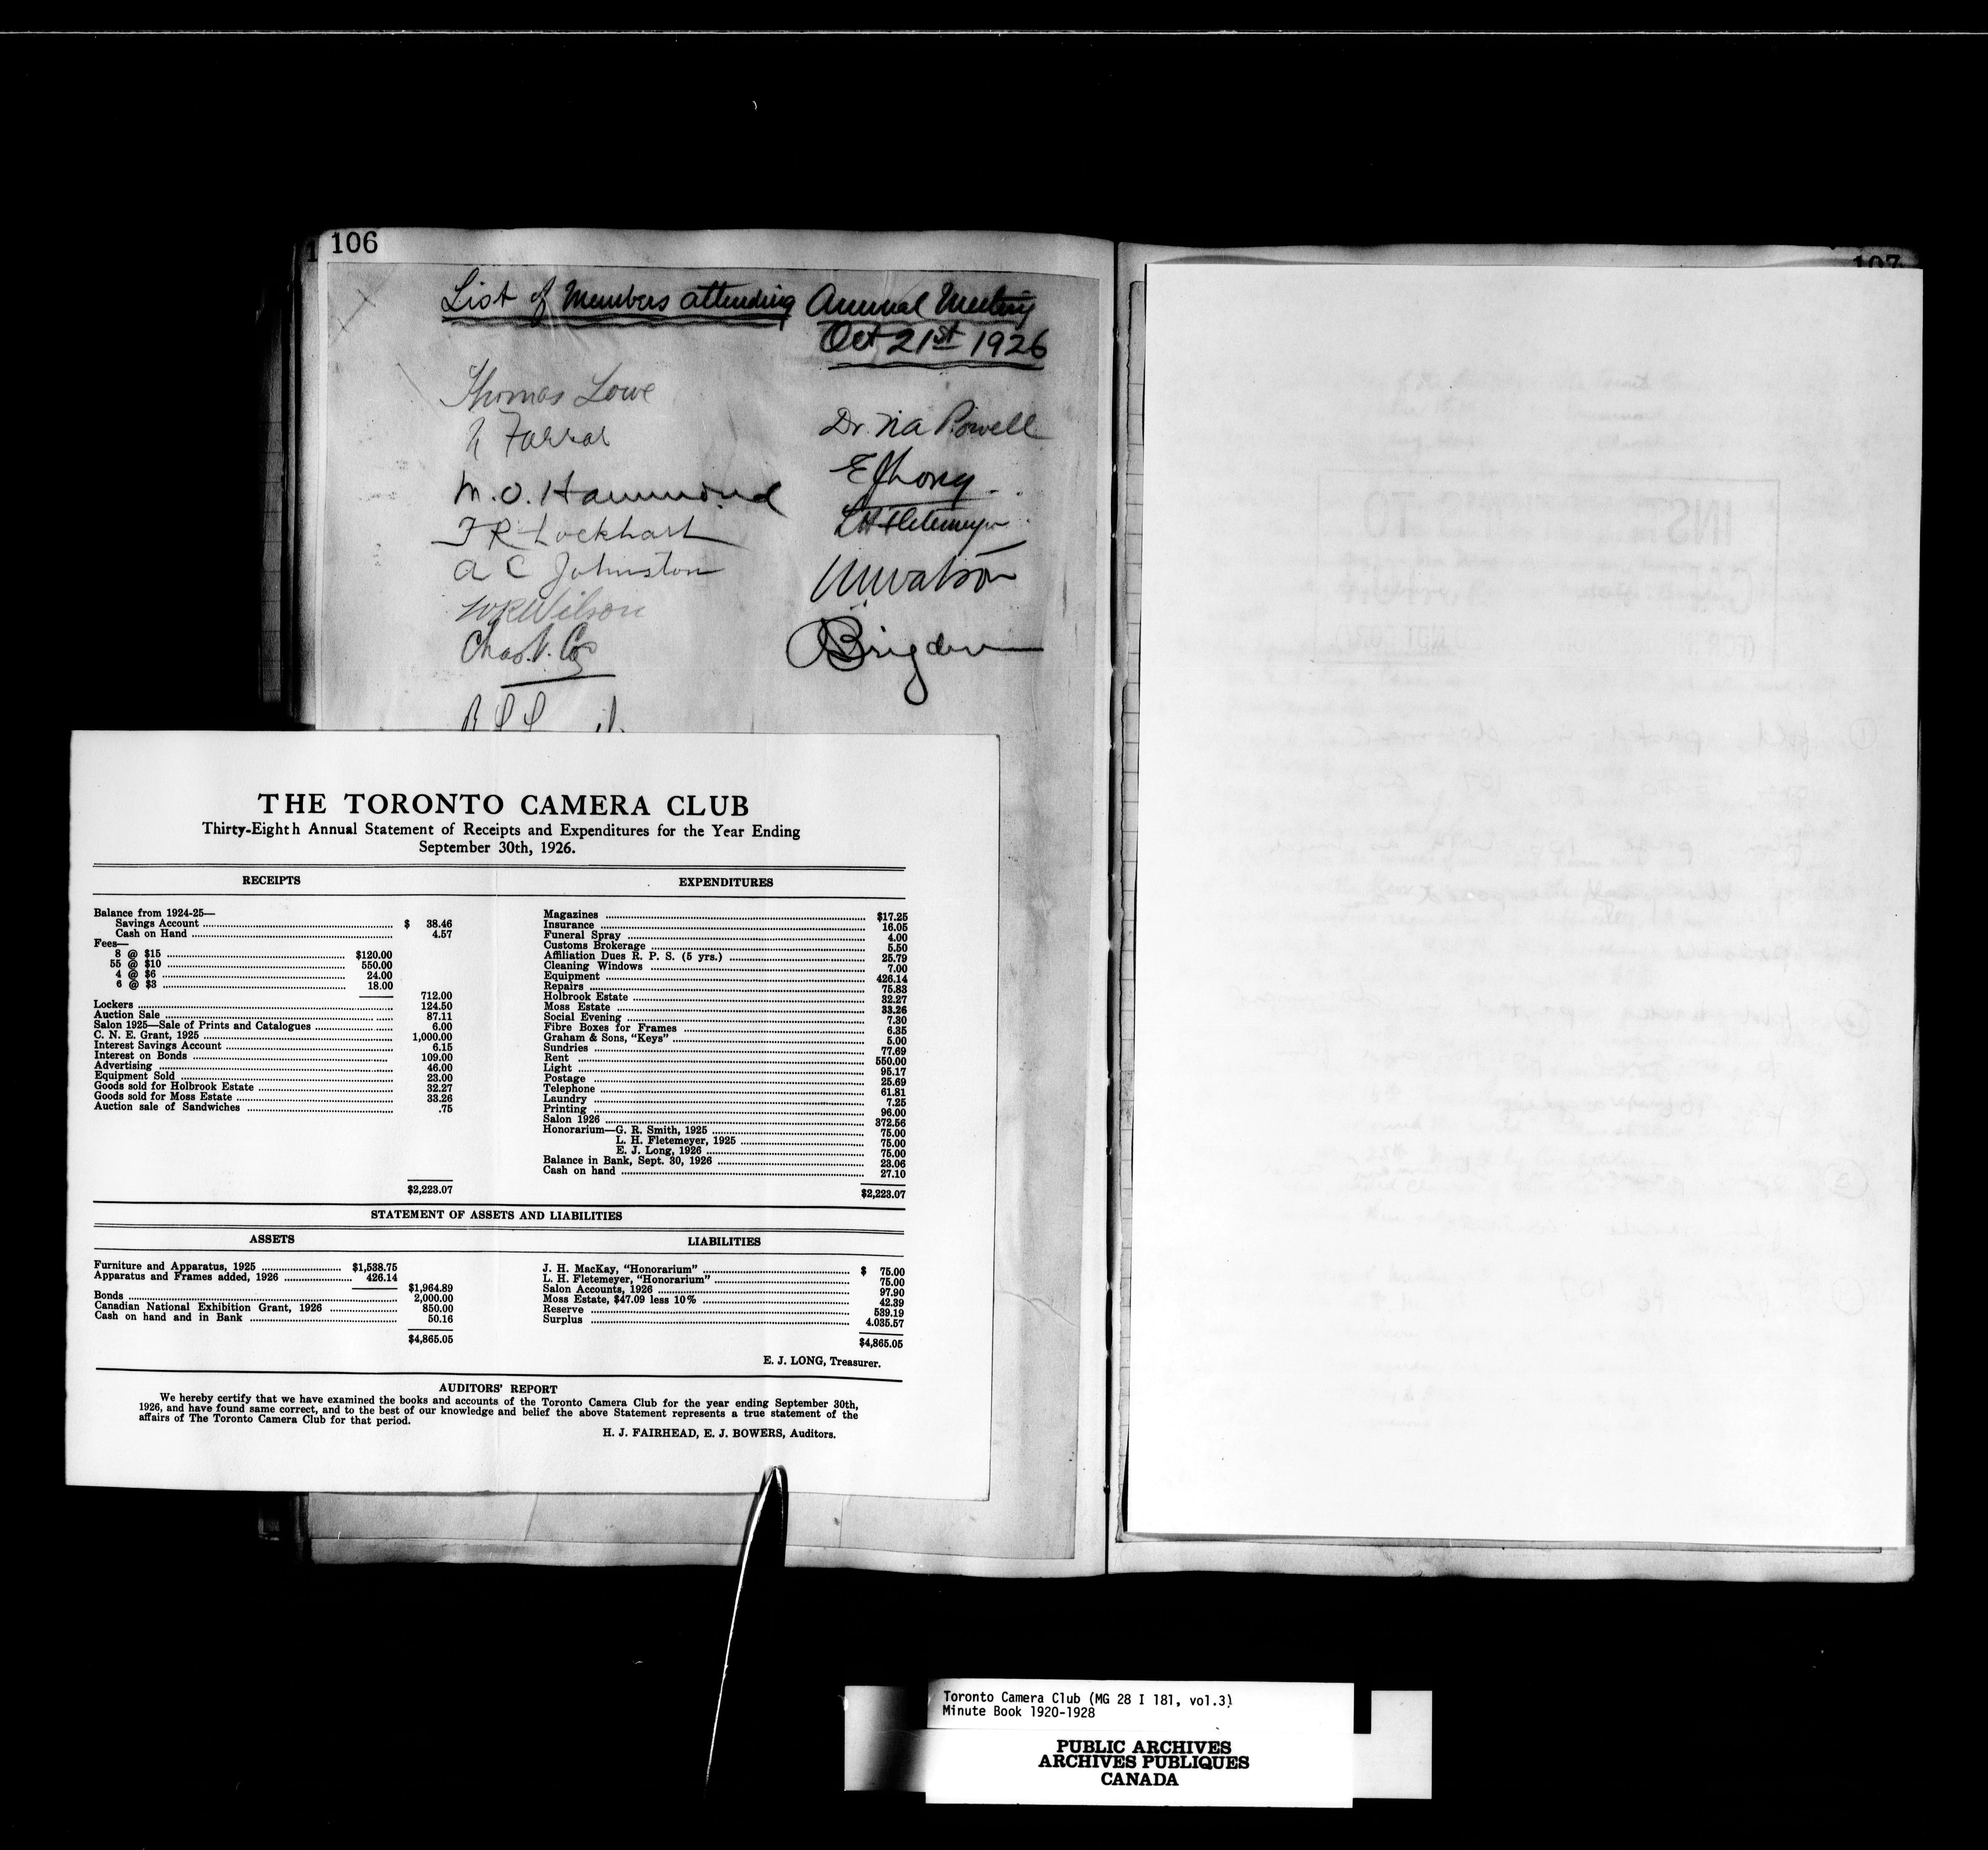 106
List of Members attending Annual Meeting
Oct 21st 1926
Thomas Lowe
Farrar
M. O. Hammond
F R Lockhart
A C Johnston
WR Wilson
Chas.
Dr. Powell
E J Long
L H Fletemeyer
Watson
Brigden
107
THE TORONTO CAMERA CLUB
Thirty-Eighth Annual Statement of Receipts and Expenditures for the Year Ending
September 30th, 1926.
RECEIPTS
Balance from 1924-25—
Savings Account $ 38.46
Cash on Hand 4.57
Fees—
8 @ $15 $120.00
55 @ $10 550.00
4 @ $6 24.00
6 @ $3 18.00
712.00
Lockers 124.50
Auction Sale 87.11
Salon 1925—Sale of Prints and Catalogues 6.00
C. N. E. Grant, 1925 1,000.00
Interest Savings Account 6.15
Interest on Bonds 109.00
Advertising 46.00
Equipment Sold 23.00
Goods sold for Holbrook Estate 32.27
Goods sold for Moss Estate 33.26
Auction sale of Sandwiches .75
$2,223.07
EXPENDITURES
Magazines $17.25
Insurance 16.05
Funeral Spray 4.00
Customs Brokerage 5.50
Affiliation Dues R. P. S. (5 yrs.) 25.79
Cleaning Windows 7.00
Equipment 426.14
Repairs 75.83
Holbrook Estate 32.27
Moss Estate 33.26
Social Evening 7.30
Fibre Boxes for Frames 6.35
Graham & Sons, "Keys" 5.00
Sundries 77.69
Rent 550.00
Light 95.17
Postage 25.69
Telephone 61.81
Laundry 7.25
Printing 96.00
Salon 1926 372.56
Honorarium—G. R. Smith, 1925 75.00
L. H. Fletemeyer, 1925 75.00
E. J. Long, 1926 75.00
Balance in Bank, Sept. 30, 1926 23.06
Cash on hand 27.10
$2,223.07
STATEMENT OF ASSETS AND LIABILITIES
ASSETS
Furniture and Apparatus, 1925 $1,538.75
Apparatus and Frames added, 1926 426.14
$1,964.89
Bonds 2,000.00
Canadian National Exhibition Grant, 1926 850.00
Cash on hand and in Bank 50.16
$4,865.05
LIABILITIES
J. H. MacKay, "Honorarium" $ 75.00
L. H. Fletemeyer, "Honorarium" 75.00
Salon Accounts, 1926 97.90
Moss Estate, $47.09 less 10% 42.39
Reserve 539.19
Surplus 4.035.57
$4,865.05
E. J. LONG, Treasurer.
AUDITORS' REPORT
We hereby certify that we have examined the books and accounts of the Toronto Camera Club for the year ending September 30th,
1926, and have found same correct, and to the best of our knowledge and belief the above Statement represents a true statement of the
affairs of The Toronto Camera Club for that period.
H. J. FAIRHEAD, E. J. BOWERS, Auditors.
Toronto Camera Club (MG 28 I 181, vol.3)
Minute Book 1920-1928
PUBLIC ARCHIVES
ARCHIVES PUBLIQUES
CANADA